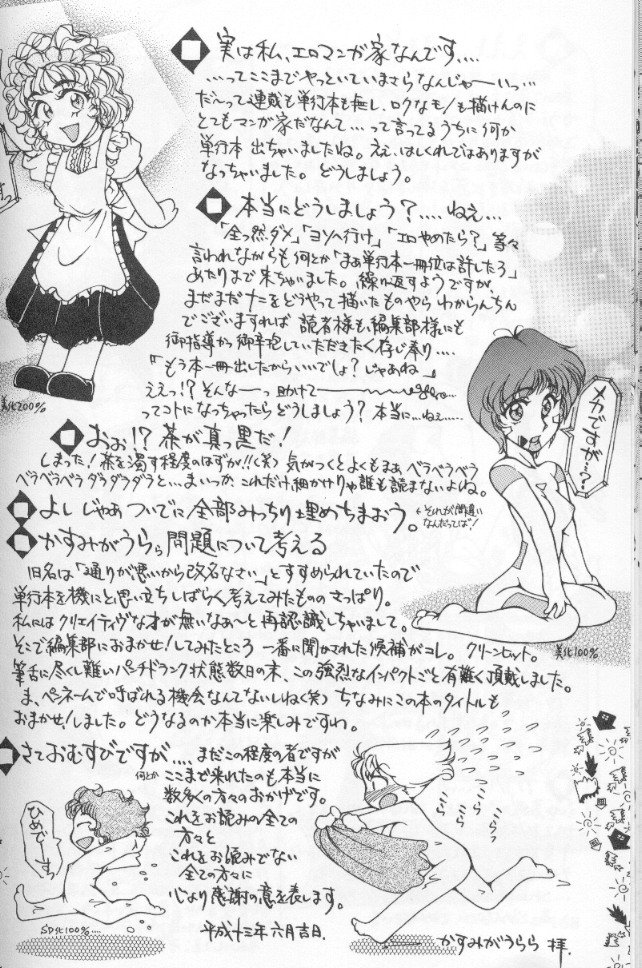 実は私、エロマンガ家なんです....
...ってここまでやっといていまさらなんじゃーいっ...
だ〜って連載も単行本も無し、ロクなモノも描けんのに
とてもマンガ家だなんて...って言ってるうちに何か
単行本 出ちゃいましたね。ええ、はしくれではありますが
なっちゃいました。どうしましょう。
本当にどうしましょう?....ねぇ...
「全っ然ダメ」「ヨソへ行け」「エロやめたら?」等々
言われながらも何とか「まあ単行本一冊位は許したろ」
あたりまで来ちゃいました。繰り返すようですが、
まだまだナニをどうやって描いたものやら わからんちん
でございますれば 読者様も編集部様にも
御指導かつ御辛抱していただきたく存じ奉り....
「もう本一冊出したからいいでしょ?じゃあね」
ええっ!?そんな〜っ助けて〜
ってコトになっちゃったらどうしましょう?本当に...ねぇ....
美化200%
メカですが...?
おぉ!?茶が真っ黒だ!
しまった!茶を濁す程度のはずが!!(笑) 気がつくとよくもまぁ、ベラベラベラ
ベラベラベラ ダラダラダラと...まいっか、これだけ細かけりゃ誰も読まないよね。
よし じゃあ ついでに全部みっちり埋めちまおう。
←それが間違いなんだってば!
かすみがうらら問題について考える
旧名は「通りが悪いから改名なさい」とすすめられていたので
単行本を機にと思い立ちしばらく考えてみたもののさっぱり。
私にはクリエイティヴな才が無いなあ〜と再認識しちゃいまして。
そこで編集部におまかせ!してみたところ 一番に聞かされた候補がコレ。クリーンヒット。
筆舌に尽くし難いパンチドランク状態数日の末、この強烈なインパクトごと有難く頂戴しました。
ま、ペンネームで呼ばれる機会なんてないしね(笑) ちなみにこの本のタイトルも
おまかせ!しました。どうなるのか本当に楽しみですわ。
美化100%
さておむすびですが....まだこの程度の者ですが
何とか
ここまで来れたのも本当に
数多くの方々のおかげです。
これをお読みの全ての
方々と
これをお読みでない
全ての方々に
心より感謝の意を表します。
平成十三年六月吉日
ひめです。
SD化100%...
うらら
うらら
かすみがうらら 拝.